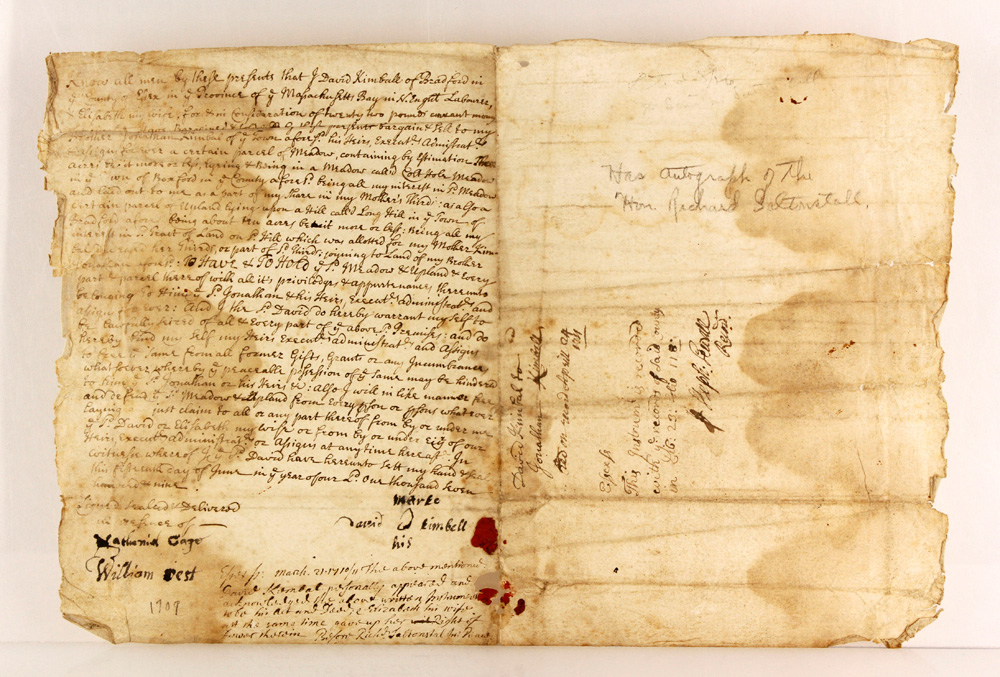 Know all men by these presents that I David Kimball of Bradford in
ye County of Essex in ye Province of ye Massachusetts Bay in N. Engld Labourer,
& Elizabeth my wife, For & in Consideration of twenty two pounds currant mony
bargain & Sell to my
Brother Jonathan Kimball of ye Town aforesd. his Heirs, Executrs Administratrs &
Assigns forever a certain parcel of Meadow, containing by Estimation Three
acres be it more or less, Lyeing & Being in a Meadow called Colt Hole Meadow
in ye Town of Boxford in ye County aforesd. being all my interest in sd. Meadow
and laid out to me as a part of my share in my Mother's Third: as also a
certain parcel of Upland Lyeing upon a Hill called Long Hill in ye Town of
Bradford aforesd. being about ten acres be it more or less: Being all my
interest in sd. Tract of Land on sd. Hill which was allotted for my Mother Kim-
her thirds, or part of sd. Thirds, joyning to Land of my Brother
To Have & To Hold ye sd. Meadow & Upland & every
part & parcel thereof with all it's priviledges & appurtenances thereunto
belonging To Him ye sd. Jonathan & his Heirs, Executrs administratrs and
assigns for ever: And I the sd. David do hereby warrant my self to
be Lawfully seized of all & every part of ye above sd. Premises: and do
hereby bind my self my Heirs Executrs administratrs and Assigns
to free ye same from all Former Gifts, Grants or any Incumbrance
whatsoever whereby ye peaceable possession of ye same may be hindred
to him ye sd. Jonathan or his Heirs &c: Also I will in like manner free
and defend ye sd. Meadow & Upland from every prson or prsons whatever
Laying just claim to all or any part thereof from by or under me
ye sd. David or Elisabeth my wife or from by or under any of our
Heirs, Executrs administratrs or Assigns at any time hereaft. In
witness whereof I ye sd. David have hereunto sett my hand & sea
this day of June in ye year of our Ld. One thousand seven
hundred & nine.
Signed sealed & Delivered
in presence of
Nathaniel Gage
William
marke
David D Kimbell
his
Essex: March. 21. 1710/11 The above mentioned
David Kimbal personally appeared and
acknowledged the above written Instrument
to be his Act and Deed & Elizabeth his wife
at the same time gave up her Right of
Dower therein Before Richd. Saltonstal Jus: Peace
1709
Has autograph of The
"Hon. Richard Saltonstall.
David Kimbal to
Jonathan Kimball
recd Aprill 24
1711
Essex
This Instrument is recorded
with ye records of Lands
in Lib. 23. Folio 118:
Steph: Sewall
Recdr.